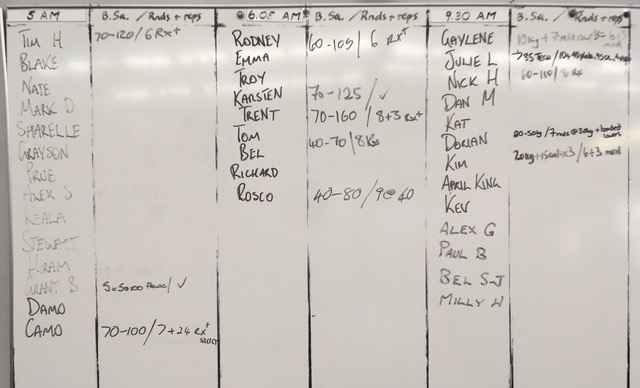 5 AM B.Sq. / Rnds + reps
Tim H 70-120 / 6 Rx+
Blake
Nate
Mark D
Sharelle
Grayson
Prue
Alex S
Keala
Stewart
Hiram
Grant B 5x5@100 Pause / ✓
Damo
Camo 70-100 / 7+24 Rx+
6.05 AM B.Sq. / Rnds + reps
Rodney 60-105 / 6 Rx+
Emma
Troy
Karsten 70-125 / ✓
Trent 70-160 / 8+3 Rx+
Tom 40-70 / 8 Rx
Bel
Richard
Rosco 40-80 / 9@40
9.30 AM B.Sq. / Rnds + reps
Gaylene 10kg + 7min row
Julie L
Nick H 60-110 / 8 Rx
Dan M
Kat
Dorian 20-50kg / + banded lowers
Kim 20kg + / 6+3 mod
April King
Kev
Alex G
Paul B
Bel S-J
Milly W